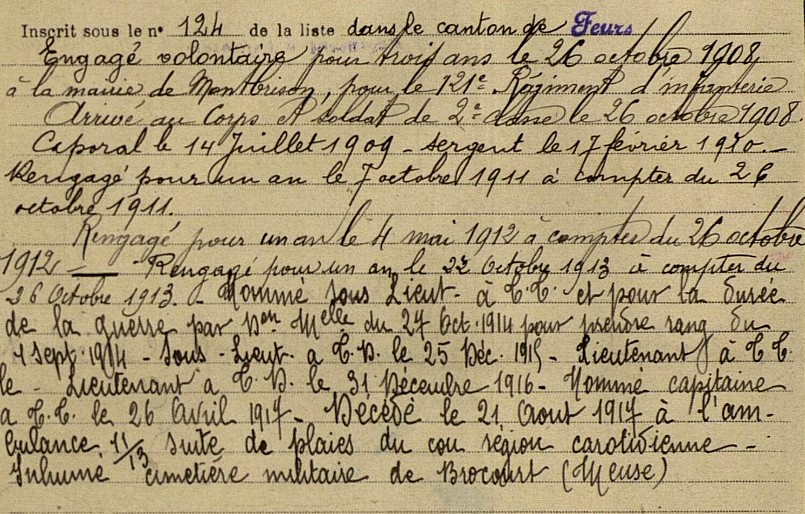 Inscrit sous le n° 124 de la liste dans le canton de Feurs
Engagé volontaire pour trois ans le 26 octobre 1908
à la mairie de Montbrison, pour le 121e Régiment d'infanterie
Arrivé au Corps et soldat de 2e classe le 26 octobre 1908.
Caporal le 14 Juillet 1909 - sergent le 17 février 1910 -
Rengagé pour un an le 7 octobre 1911 à compter du 26
octobre 1911.
Rengagé pour un an le 4 mai 1912 à compter du 26 octobre
1912 — Rengagé pour un an le 22 Octobre 1913 à compter du
26 Octobre 1913. - Nommé sous Lieut - à T.T. et pour la durée
de la guerre par Don Melle du 27 Oct. 1914 pour prendre rang du
7 Sept. 1914 - Sous - Lieut - a T.D. le 25 Déc. 1915 - Lieutenant à T.T.
le - Lieutenant a T.D. le 31 Décembre 1916 - Nommé capitaine
a T.T. le 26 Avril 1917 - Décédé le 21 Aout 1917 à l'am-
bulance 11/13 suite de plaies du cou région carotidienne -
Inhumé cimetière militaire de Brocourt (Meuse)